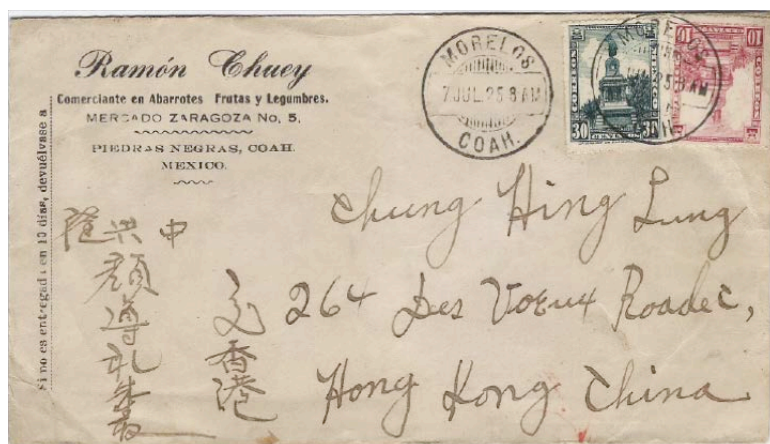 Ramón Chuey
Comerciante en Abarrotes Frutas y Legumbres.
MERCADO ZARAGOZA No, 5,
PIEDRAS NEGRAS, COAH.
MEXICO.
Si no es entregada en 10 días, devuélvase a
MORELOS
7 JUL. 25 8 AM
COAH.
COLON
CORREOS
30 CENTAVOS 30
MORELOS
25 8 AM
10 10
Chung Hing Lung
264 Des Voeux Roadec,
Hong Kong China
香港
中興隆